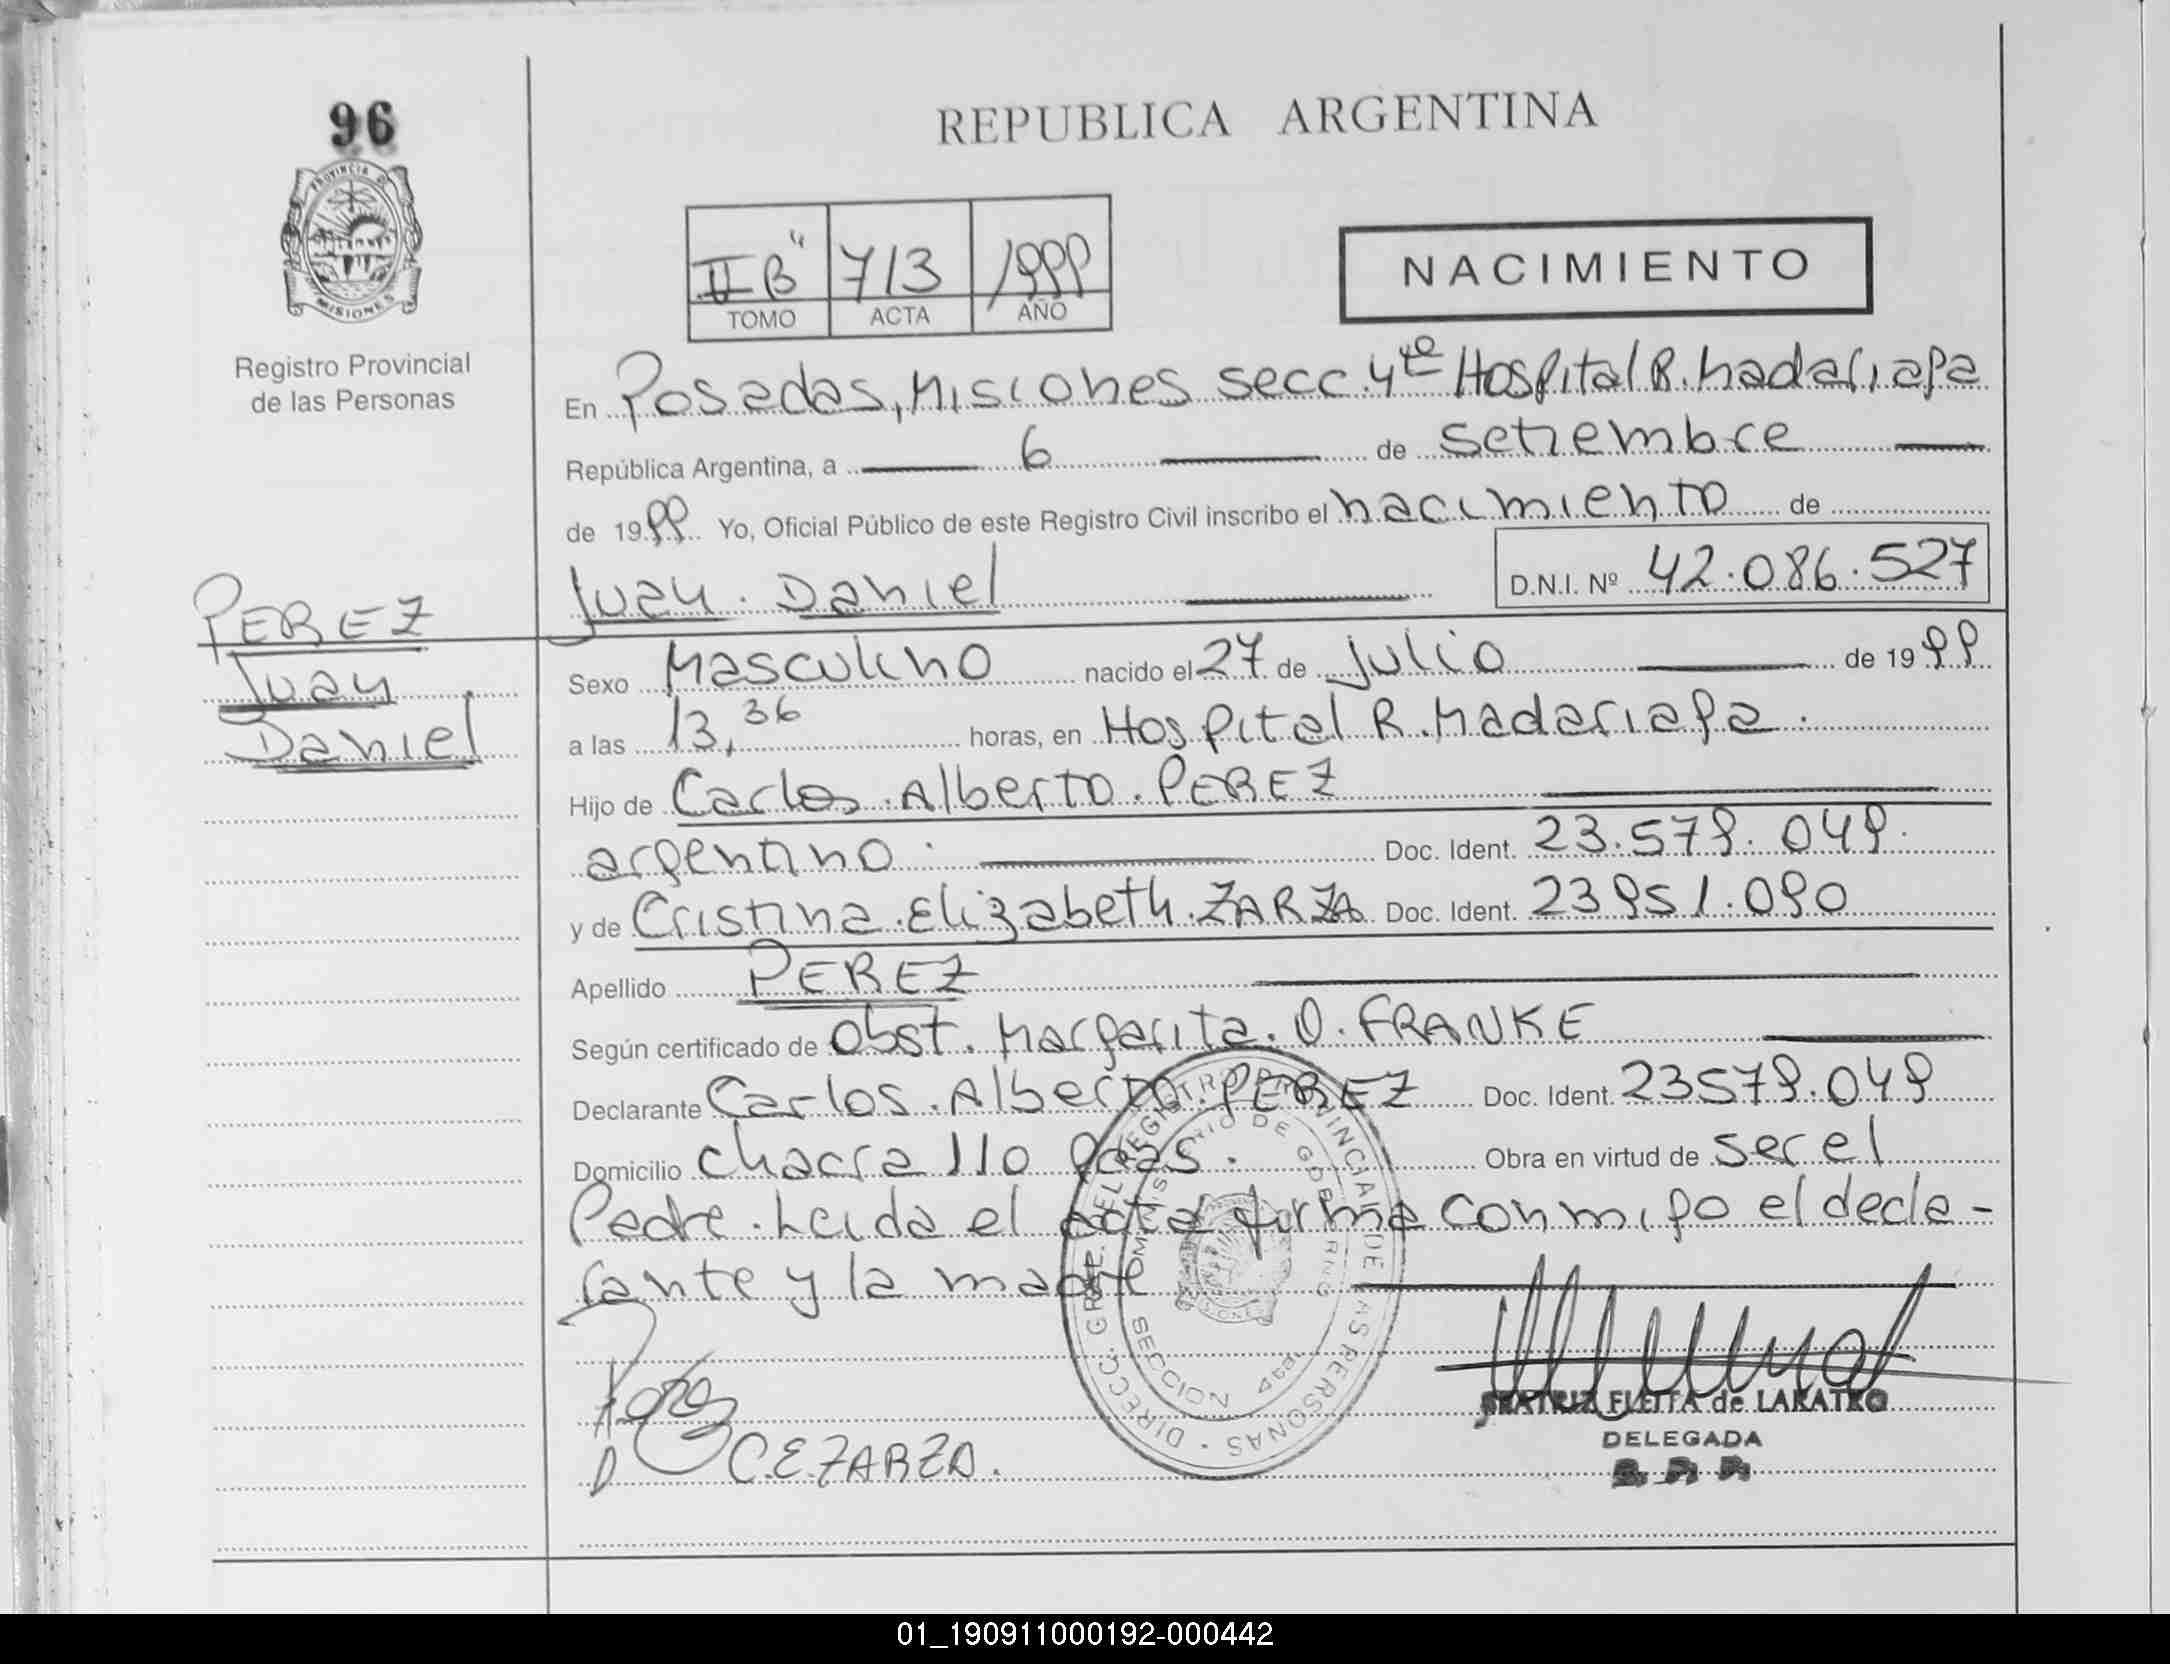 96
REPUBLICA ARGENTINA
PROVINCIA DE MISIONES
Registro Provincial
de las Personas
II "B" 713 1999
TOMO ACTA AÑO
NACIMIENTO
En Posadas, Misiones secc. 4ta Hospital R. Madariaga
República Argentina, a 6 de setiembre
de 1999 Yo, Oficial Público de este Registro Civil inscribo el nacimiento de
Juan Daniel D.N.I. Nº 42.086.527
PEREZ
Juan
Daniel
Sexo Masculino nacido el 27 de Julio de 1999
a las 13,36 horas, en Hospital R. Madariaga.
Hijo de Carlos Alberto PEREZ
argentino. Doc. Ident. 23.579.049.
y de Cristina Elizabeth ZARZA Doc. Ident. 23951.090
Apellido PEREZ
Según certificado de Obst. Margarita O. FRANKE
Declarante Carlos Alberto PEREZ Doc. Ident. 23579.049
Domicilio chacra 110 Pdas. Obra en virtud de ser el
Padre. Leida el acta firma conmigo el decla-
rante y la madre
DIRECC. GRAL. DEL REGISTRO PROVINCIAL DE LAS PERSONAS
MINISTERIO DE GOBIERNO
SECCION 4ta.
C.E ZARZA.
BEATRIZ FLEITA de LAKATKO
DELEGADA
01_190911000192-000442